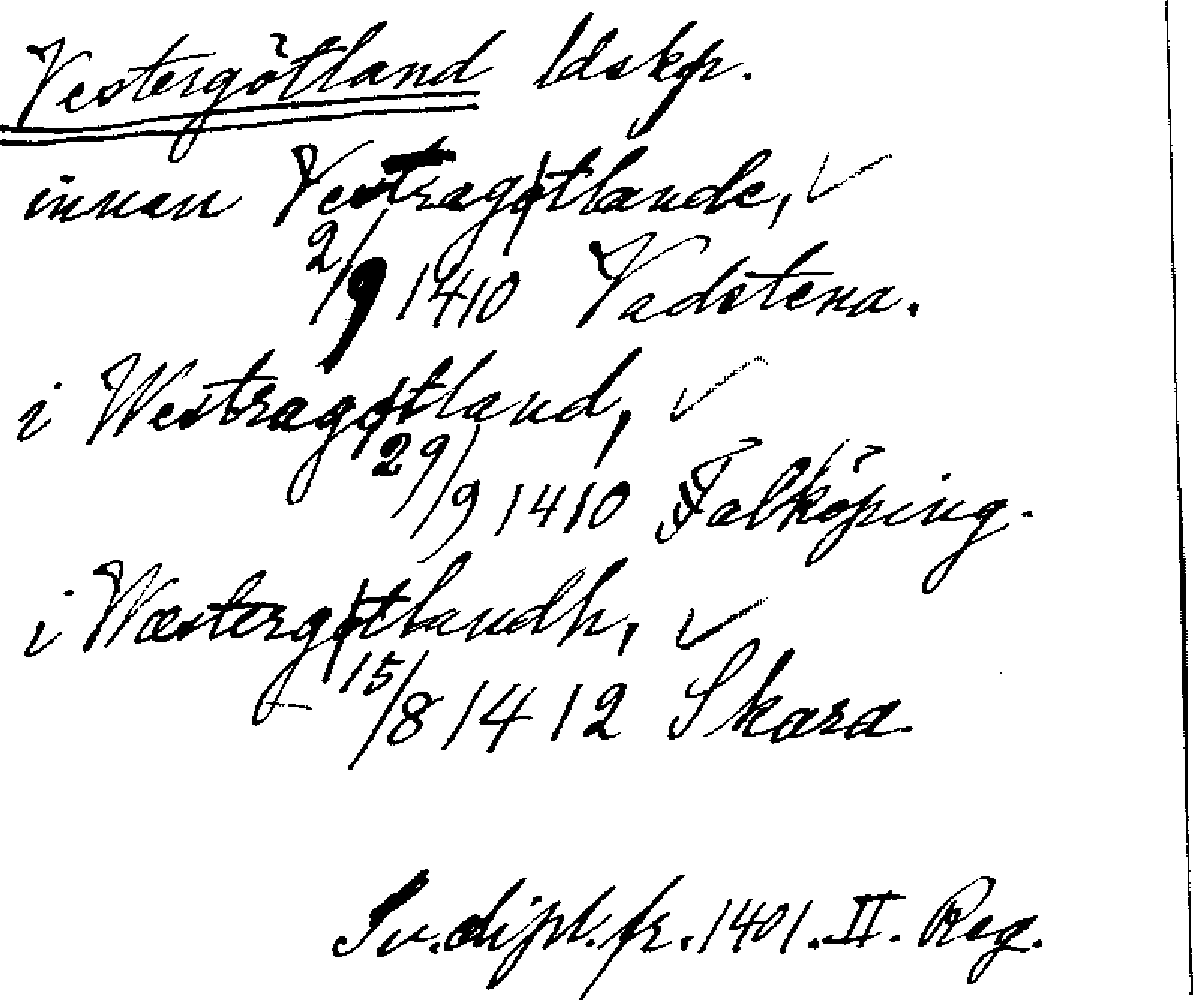 Vestergötland ldskp.
innan Vestragøtlande, ✓
2/9 1410 Vadstena.
i Westragøtland, ✓
29/9 1410 Falköping.
i Wæstergøtlandh, ✓
15/8 1412 Skara.
Sv. dipl. fr. 1401. II. Reg.